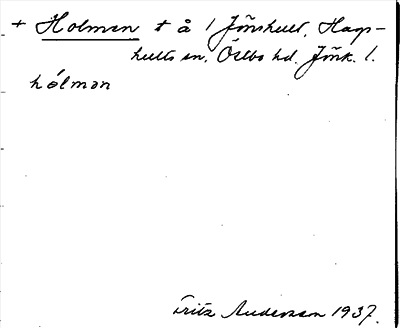 + Holmen t å / Jönshult, Hags-
hults sn. Östbo hd. Jönk. l.
hólmən
Fritz Andersson 1937.